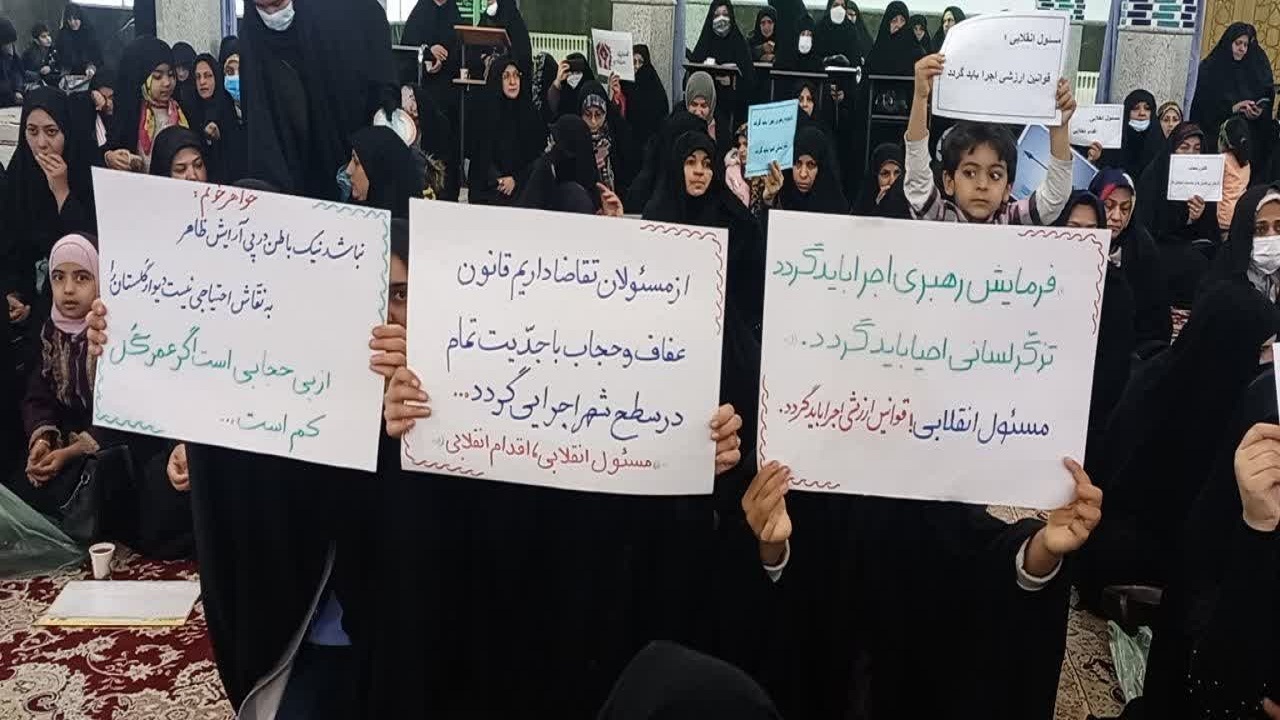 خواهر خوبم:
نباشد نیک باطن در پی آرایش ظاهر
به نقاش احتیاجی نیست دیوار گلستان را
از بی حجابی است اگر عمر گل
کم است...
از مسئولان تقاضا داریم قانون
عفاف و حجاب با جدّیت تمام
در سطح شهر اجرایی گردد...
«مسئول انقلابی، اقدام انقلابی»
فرمایش رهبری اجرا باید گردد
تذکّر لسانی احیا باید گردد.
مسئول انقلابی! قوانین ارزشی اجرا باید گردد.
مسئول انقلابی !
قوانین ارزشی اجرا باید گردد
مسئول انقلابی
اقدام انقلابی